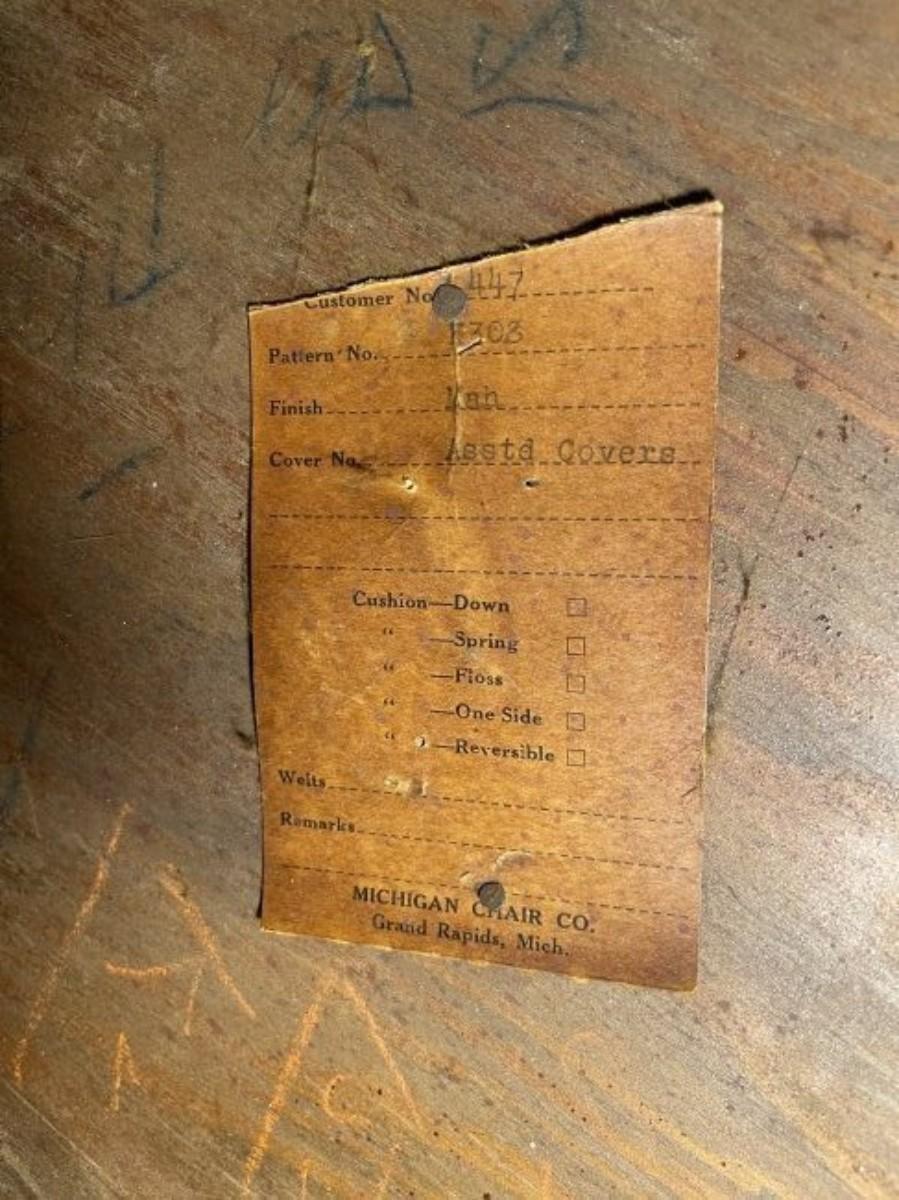 Customer No. 447
Pattern No. 303
Finish Mah
Cover No. Asstd Covers
Cushion—Down □
“ —Spring □
“ —Floss □
“ —One Side □
“ —Reversible □
Welts
Remarks
MICHIGAN CHAIR CO.
Grand Rapids, Mich.